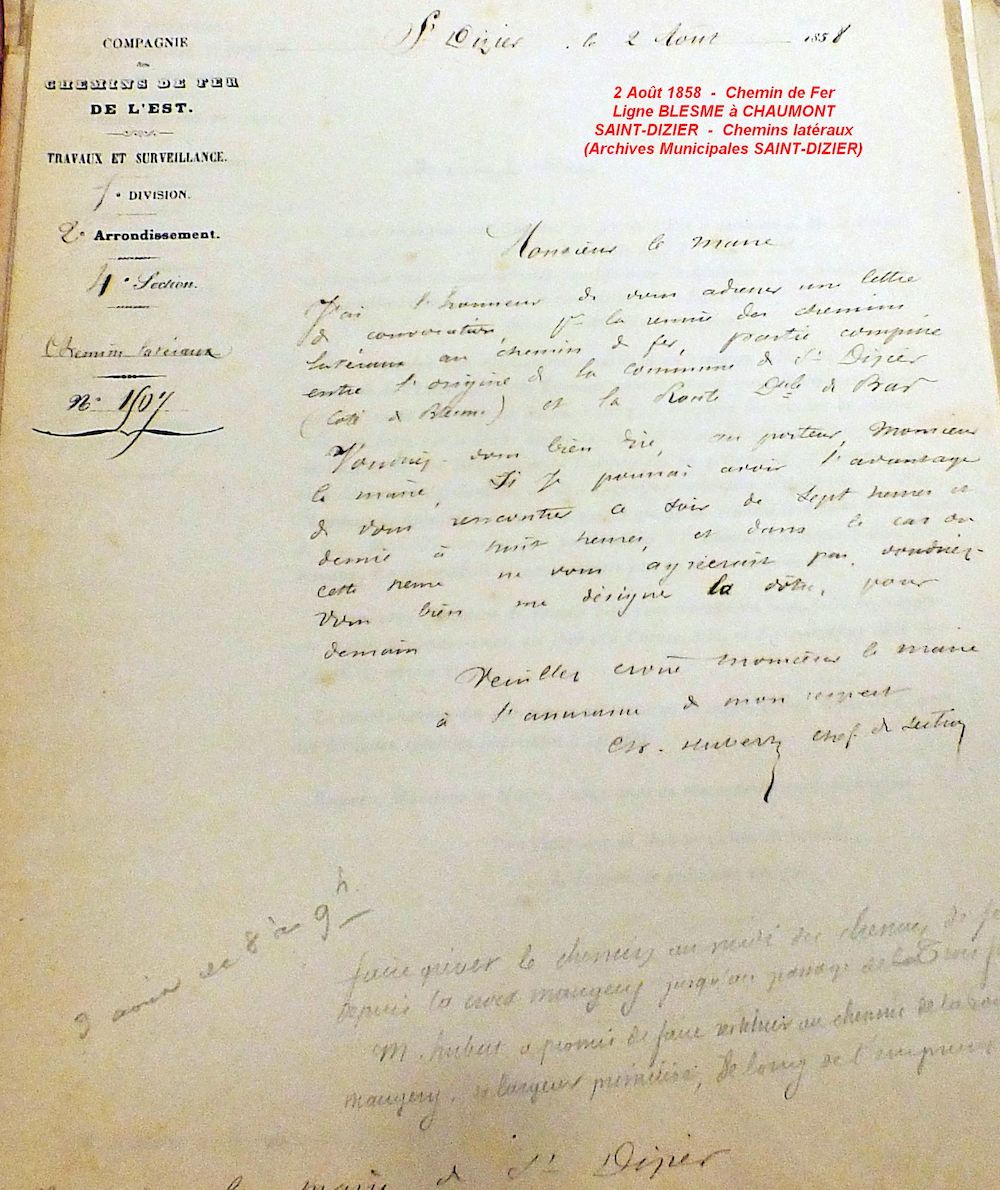 COMPAGNIE
des
CHEMINS DE FER
DE L'EST.
TRAVAUX ET SURVEILLANCE.
1e DIVISION.
2e Arrondissement.
4e Section.
Chemins latéraux
N° 1507
St Dizier, le 2 Aout 1858
2 Août 1858 - Chemin de Fer
Ligne BLESME à CHAUMONT
SAINT-DIZIER - Chemins latéraux
(Archives Municipales SAINT-DIZIER)
Monsieur le maire
J'ai l'honneur de vous adresser une lettre
de convocation, pr la remise des chemins
latéraux au chemin de fer, partie comprise
entre l'origine de la commune de St Dizier
(Coté de Blesme) et la Route Dale de Bar
Voudriez-vous bien dire, au porteur, Monsieur
le maire, Si Je pourrai avoir l'avantage
de vous rencontrer ce soir de Sept heures et
demie à huit heures, et dans le cas où
cette heure ne vous agréerait pas, voudriez-
vous bien me désigner la vôtre, pour
demain
Veuillez croire monsieur le maire
à l'assurance de mon respect
Ch. Hubert Chef de Section
3 de 8 à 9 h.
faire le chemin au midi du chemin de fe
depuis la croix maugery jusqu'au passage de la
M. hubert a promis de faire restituer au chemin de la
maugery, sa largeur primitive, le long de l'emprunt
le maire de St Dizier